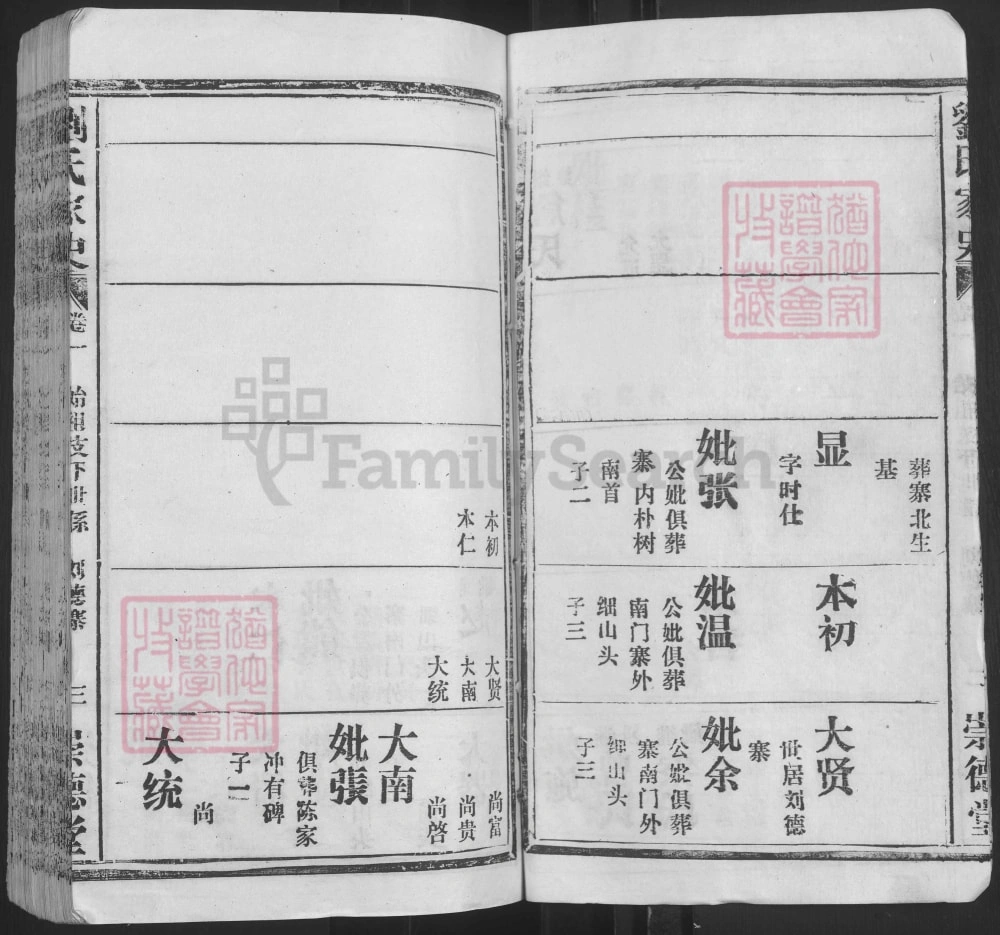 劉氏家史
葬寨北生
基
显
字时仕
妣张
公妣俱葬
寨内朴树
南首
子二
本初
妣温
公妣俱葬
南门寨外
细山头
子三
大贤
世居刘德
寨
妣余
公妣俱葬
寨南门外
细山头
子三
崇德堂
本初
本仁
大贤
大南
大统
尚富
尚贵
尚啓
大南
妣張
俱葬陈家
冲有碑
子一
尚
大统
劉氏家史
卷一
始祖支下世系
刘德寨
三
崇德堂
猶他家譜學會收藏
猶他家譜學會收藏
FamilySearch